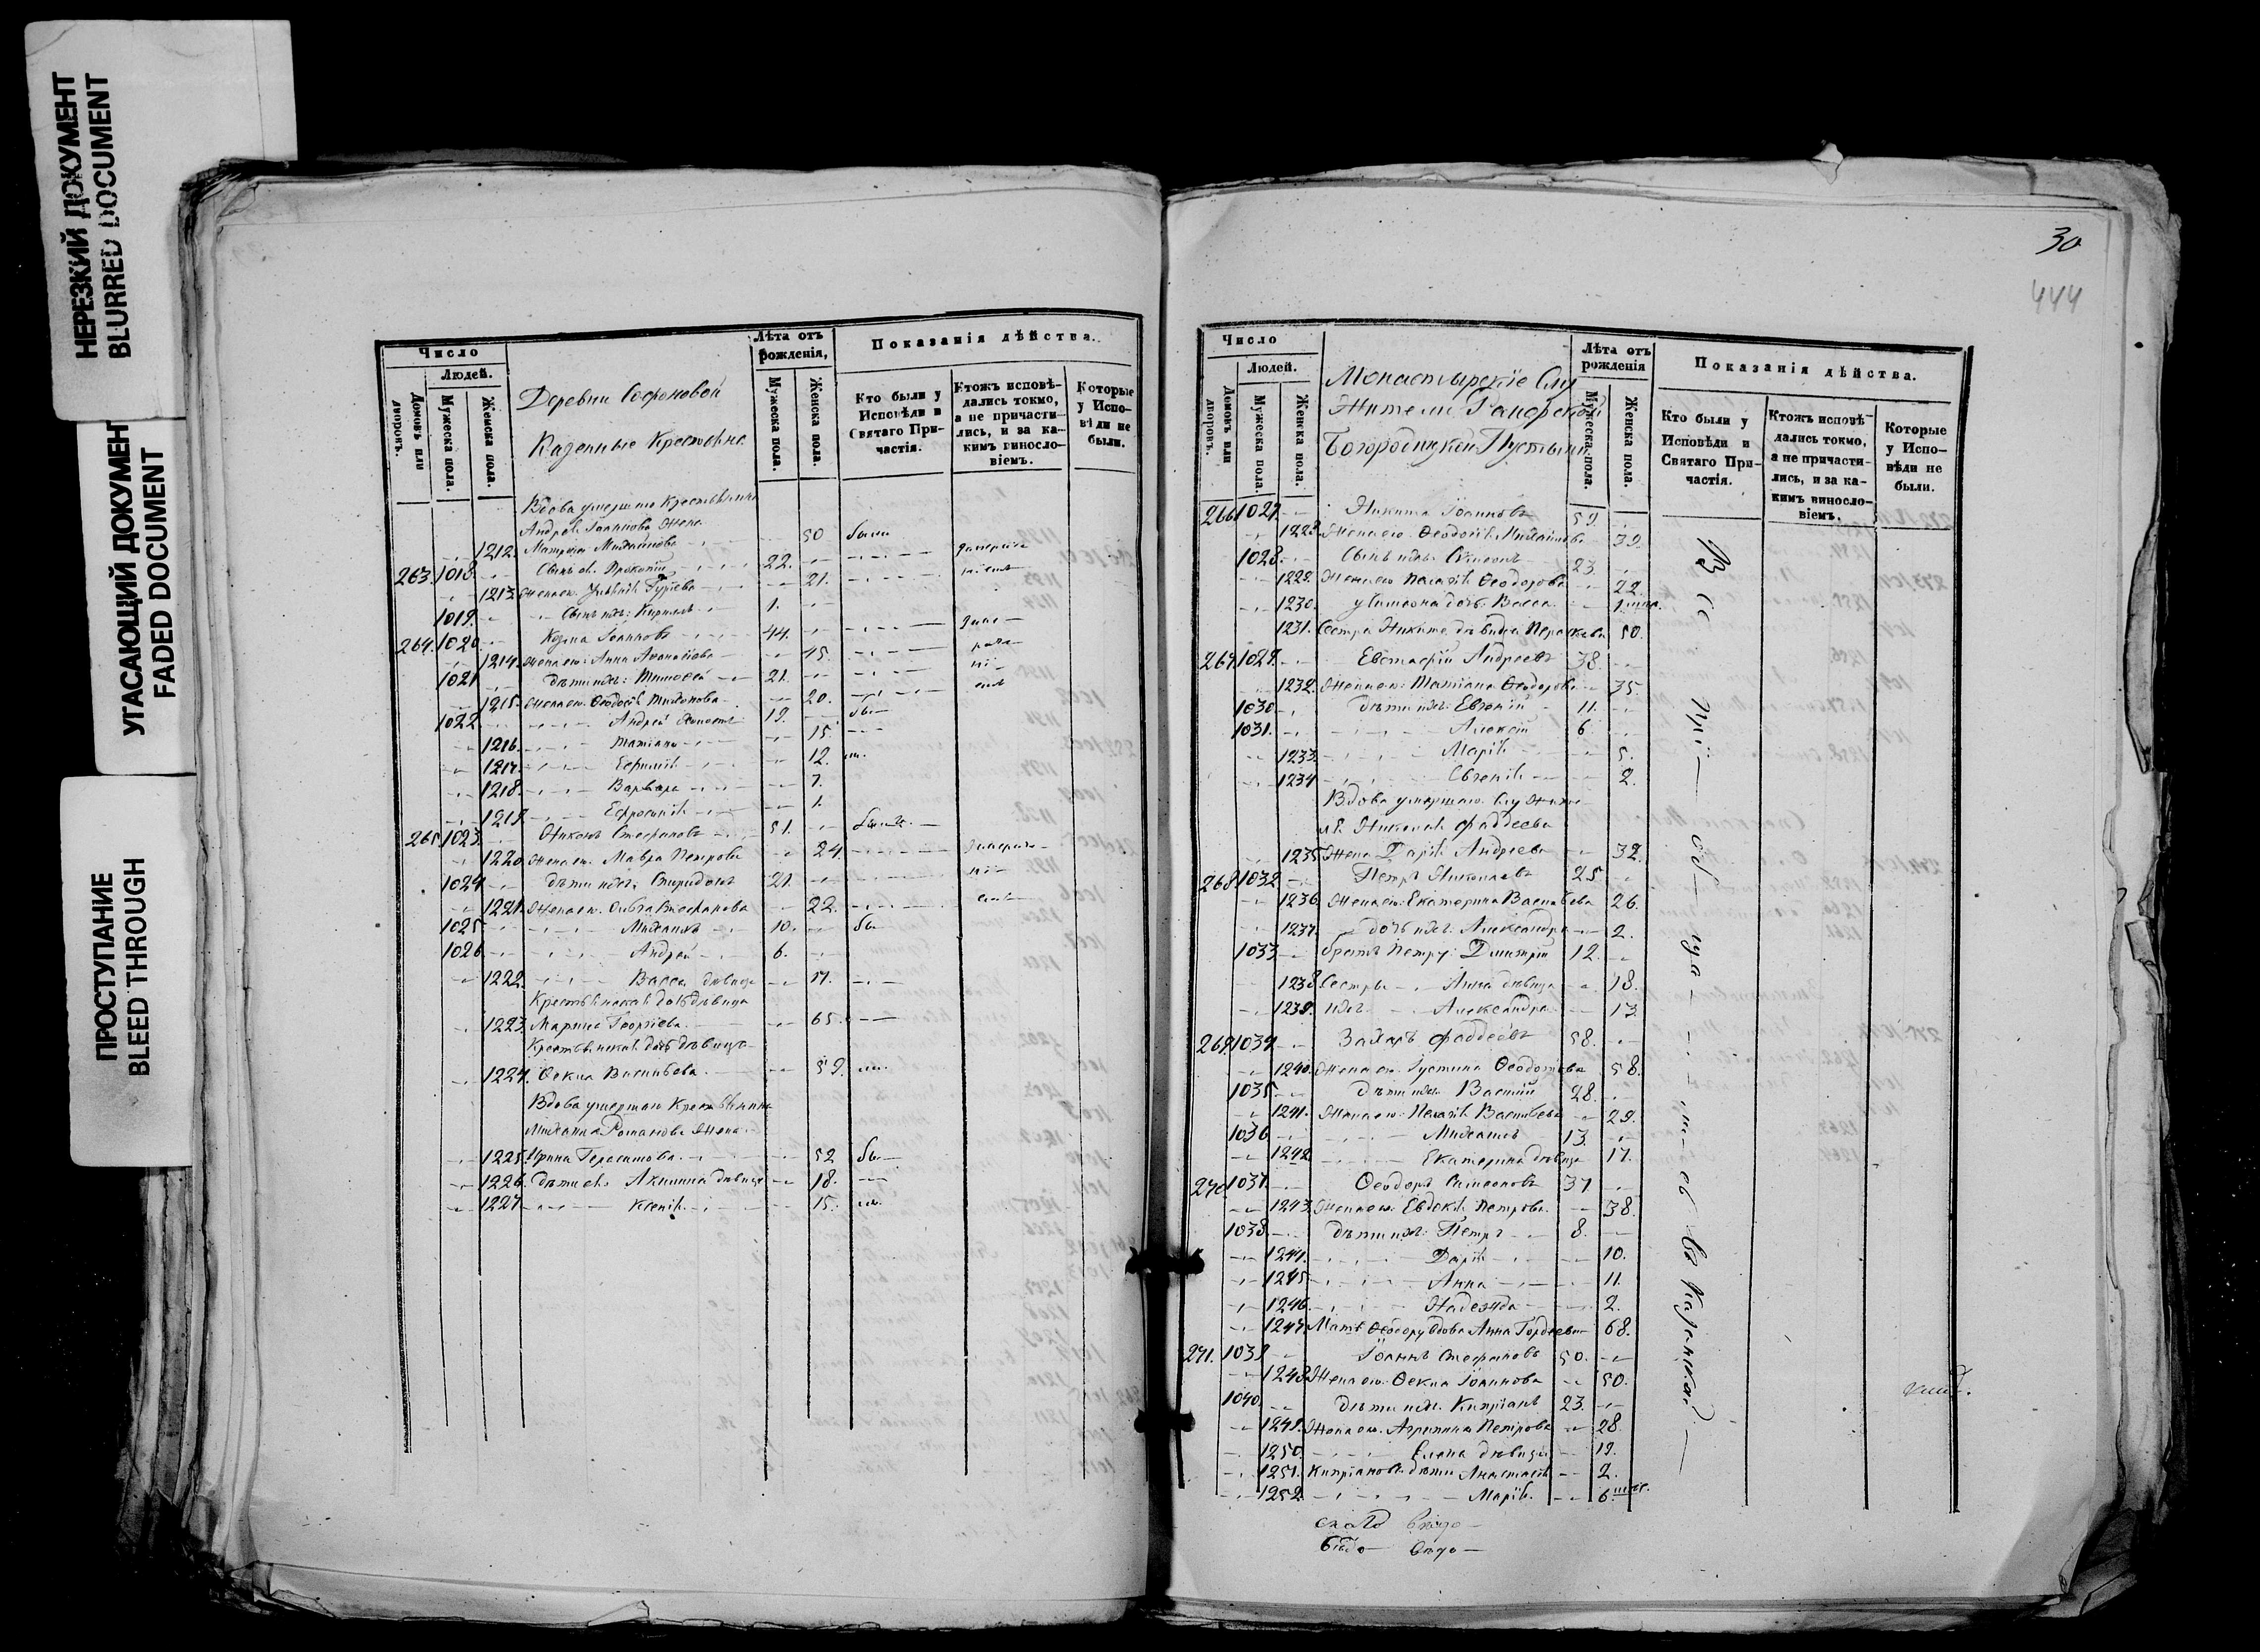 НЕРЕЗКИЙ ДОКУМЕНТ
BLURRED DOCUMENT
УГАСАЮЩИЙ ДОКУМЕН
FADED DOCUMENT
ПРОСТУПАНИЕ
BLEED THROUGH
Число
Людей.
Домовъ или дворовъ.
Мужеска пола.
Женска пола.
Деревни Софоновой
Казенные Крестьяне
Лѣта отъ рожденія,
Мужеска пола.
Женска пола.
Показанія дѣйства.
Кто были у Исповѣди и Святаго Причастія.
Ктожъ исповѣдались токмо, а не причастились, и за какимъ винословіемъ.
Которые у Исповѣди не были.
Вдова умершаго Крестьянина
Андрея Іоаннова Жена
1212. Матрона Михайлова 50 была
263. 1018. Сынъ ея Прокопій 22.
1213. Жена ег. Гурьева 21.
1019. Сынъ ихъ: Кириллъ 1.
264. 1020. Козма Іоанновъ 44.
1214. Жена ег: Анна 45.
1021 Дѣти ихъ: Тимоѳей 21.
1215. Жена ег. Ѳеодосія 20.
1022 Андрей 19. бы
1216. Татіана 15
1217. Евфимія 12.
1218. Варвара 7.
1219. Евфросинія 1.
265. 1023. Никонъ Стефановъ 51.
1220. Жена ег. Мавра Петрова 24.
1024. Дѣти ихъ: Спиридонъ 21.
1221. Жена ег. Ольга Стефанова 22.
1025 Михаилъ 10. бы
1026 Андрей 6.
1222. Васса дѣвица 17.
Крестьянская дочь дѣвица
1223. Марина Георгіева. 65.
Крестьянская дочь дѣвица
1224. Ѳекла Васильева. 59.
Вдова умершаго Крестьянина
Михаила Романова Жена
1225. Ирина Герасимова. 52 бы
1226. Дѣти ея. Акилина дѣвица 18.
1227. Ксенія 15.
30
444
Число
Людей.
Домовъ или дворовъ.
Мужеска пола.
Женска пола.
Монастырскіе Слу
Жители
Богородицкой Пустыни
Лѣта отъ рожденія
Мужеска пола.
Женска пола.
Показанія дѣйства.
Кто были у Исповѣди и Святаго Причастія.
Ктожъ исповѣдались токмо, а не причастились, и за какимъ винословіемъ.
Которые у Исповѣди не были.
266 1027. Никита Іоанновъ 59.
1228. Жена ею Ѳеодосія Михайлова 39.
1028. Сынъ ихъ Симеонъ 23.
1229. Жена ею Пелагія Ѳеодорова 22.
1230. у Симеона дочь Васса 1
1231. Сестра Никиты дѣвица Параскева 50.
267. 1029. Евстафій Андреевъ 38.
1232. Жена ею: Татіана Ѳеодорова 35.
1030 Дѣти ихъ: Евгеній 11.
1031. Алексій 6.
1233 Марія 5.
1234 Евгенія 2.
Вдова умершаго Служи
ля Николая Фаддеева
1235 Жена Дарія Андреева 32.
268. 1032. Петръ Николаевъ 25
1236. Жена ею: Екатерина Васильева 26.
1237. дочь ихъ: Александра 2.
1033 братъ Петру: Димитрій 12.
1238 Сестры Анна дѣвица 18.
1239. ихъ: Александра 13
269. 1034 Захаръ Фаддеевъ 58.
1240. Жена ею. Іустина Ѳеодотьева 58.
1035 Дѣти ихъ. Василій 28.
1241. Жена ею: Пелагія Васильева 29.
1036 Михаилъ 13.
1242 Екатерина дѣвица 17.
270 1037. Ѳеодоръ Симеоновъ 37
1243. Жена ею. Евдокія Петрова. 38.
1038. дѣти ихъ: Петръ 8.
1244. Дарія 10.
1245. Анна 11.
1246. Надежда 2.
1247. Мать Ѳеодору вдова Анна Гордеева 68.
271. 1039 Іоаннъ Стефановъ 50.
1248 Жена ею. Ѳекла Іоаннова 50.
1040 Дѣти ихъ. Кипріанъ 23.
1249. Жена ею. Агрипина Петрова 28.
1250. Елена дѣвица 19.
1251. Кипріановы дѣти Анастасія 2.
1252. Марія. 6